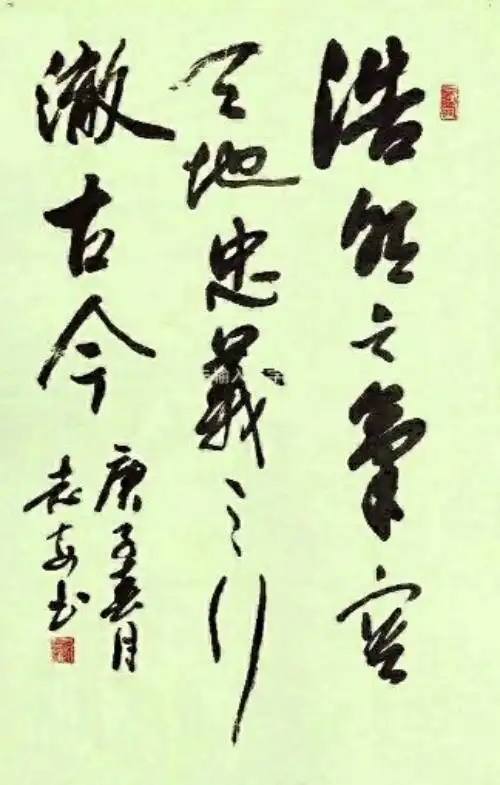 浩然之氣塞
天地忠義之行
澈古今
庚子春月
志安书